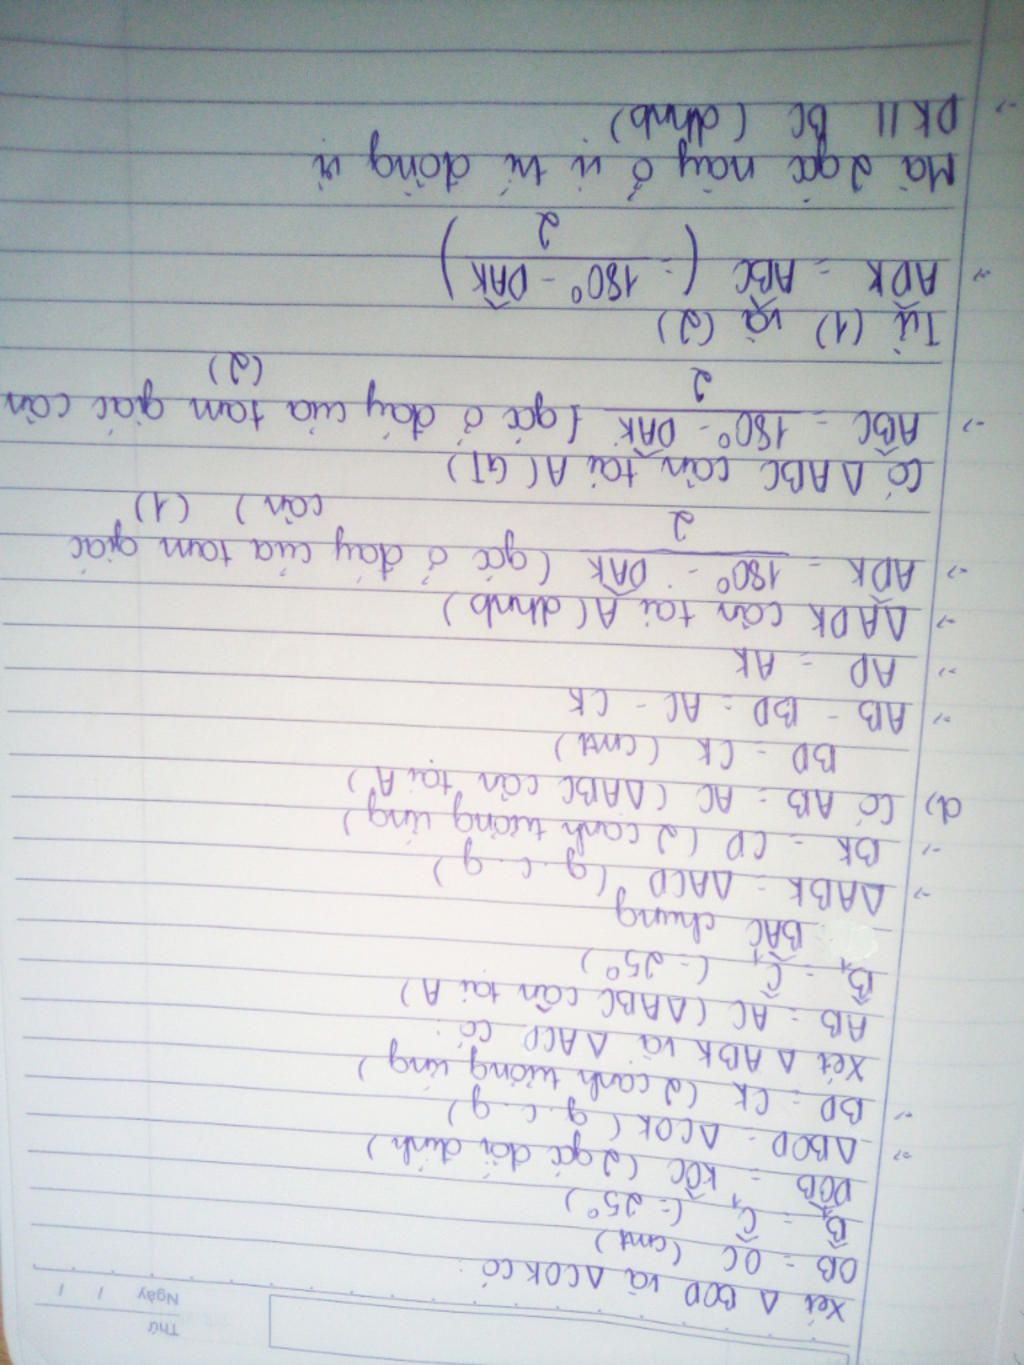 Thứ
Ngày / /
Xét Δ BOD và ΔCOK có :
OB = OC (cmt)
B̂₁ = Ĉ₁ (= 25°)
DÔB = KÔC (2 góc đối đỉnh)
→ ΔBOD = ΔCOK (g.c.g)
→ BD = CK (2 cạnh tương ứng)
Xét Δ ABK và Δ ACD có :
AB = AC (ΔABC cân tại A)
B̂₁ = Ĉ₁ (= 25°)
BÂC chung
→ ΔABK = ΔACD (g.c.g)
→ BK = CD (2 cạnh tương ứng)
d) Có AB = AC (ΔABC cân tại A)
BD = CK (cmt)
→ AB - BD = AC - CK
→ AD = AK
→ ΔADK cân tại A (dhnb)
→ AD̂K = 180° - DÂK / 2 (góc ở đáy của tam giác
cân) (1)
Có Δ ABC cân tại A (GT)
→ AB̂C = 180° - DÂK / 2 (góc ở đáy của tam giác cân
(2)
Từ (1) và (2)
→ AD̂K = AB̂C (= 180° - DÂK / 2)
Mà 2 góc này ở vị trí đồng vị
→ DK // BC (dhnb)